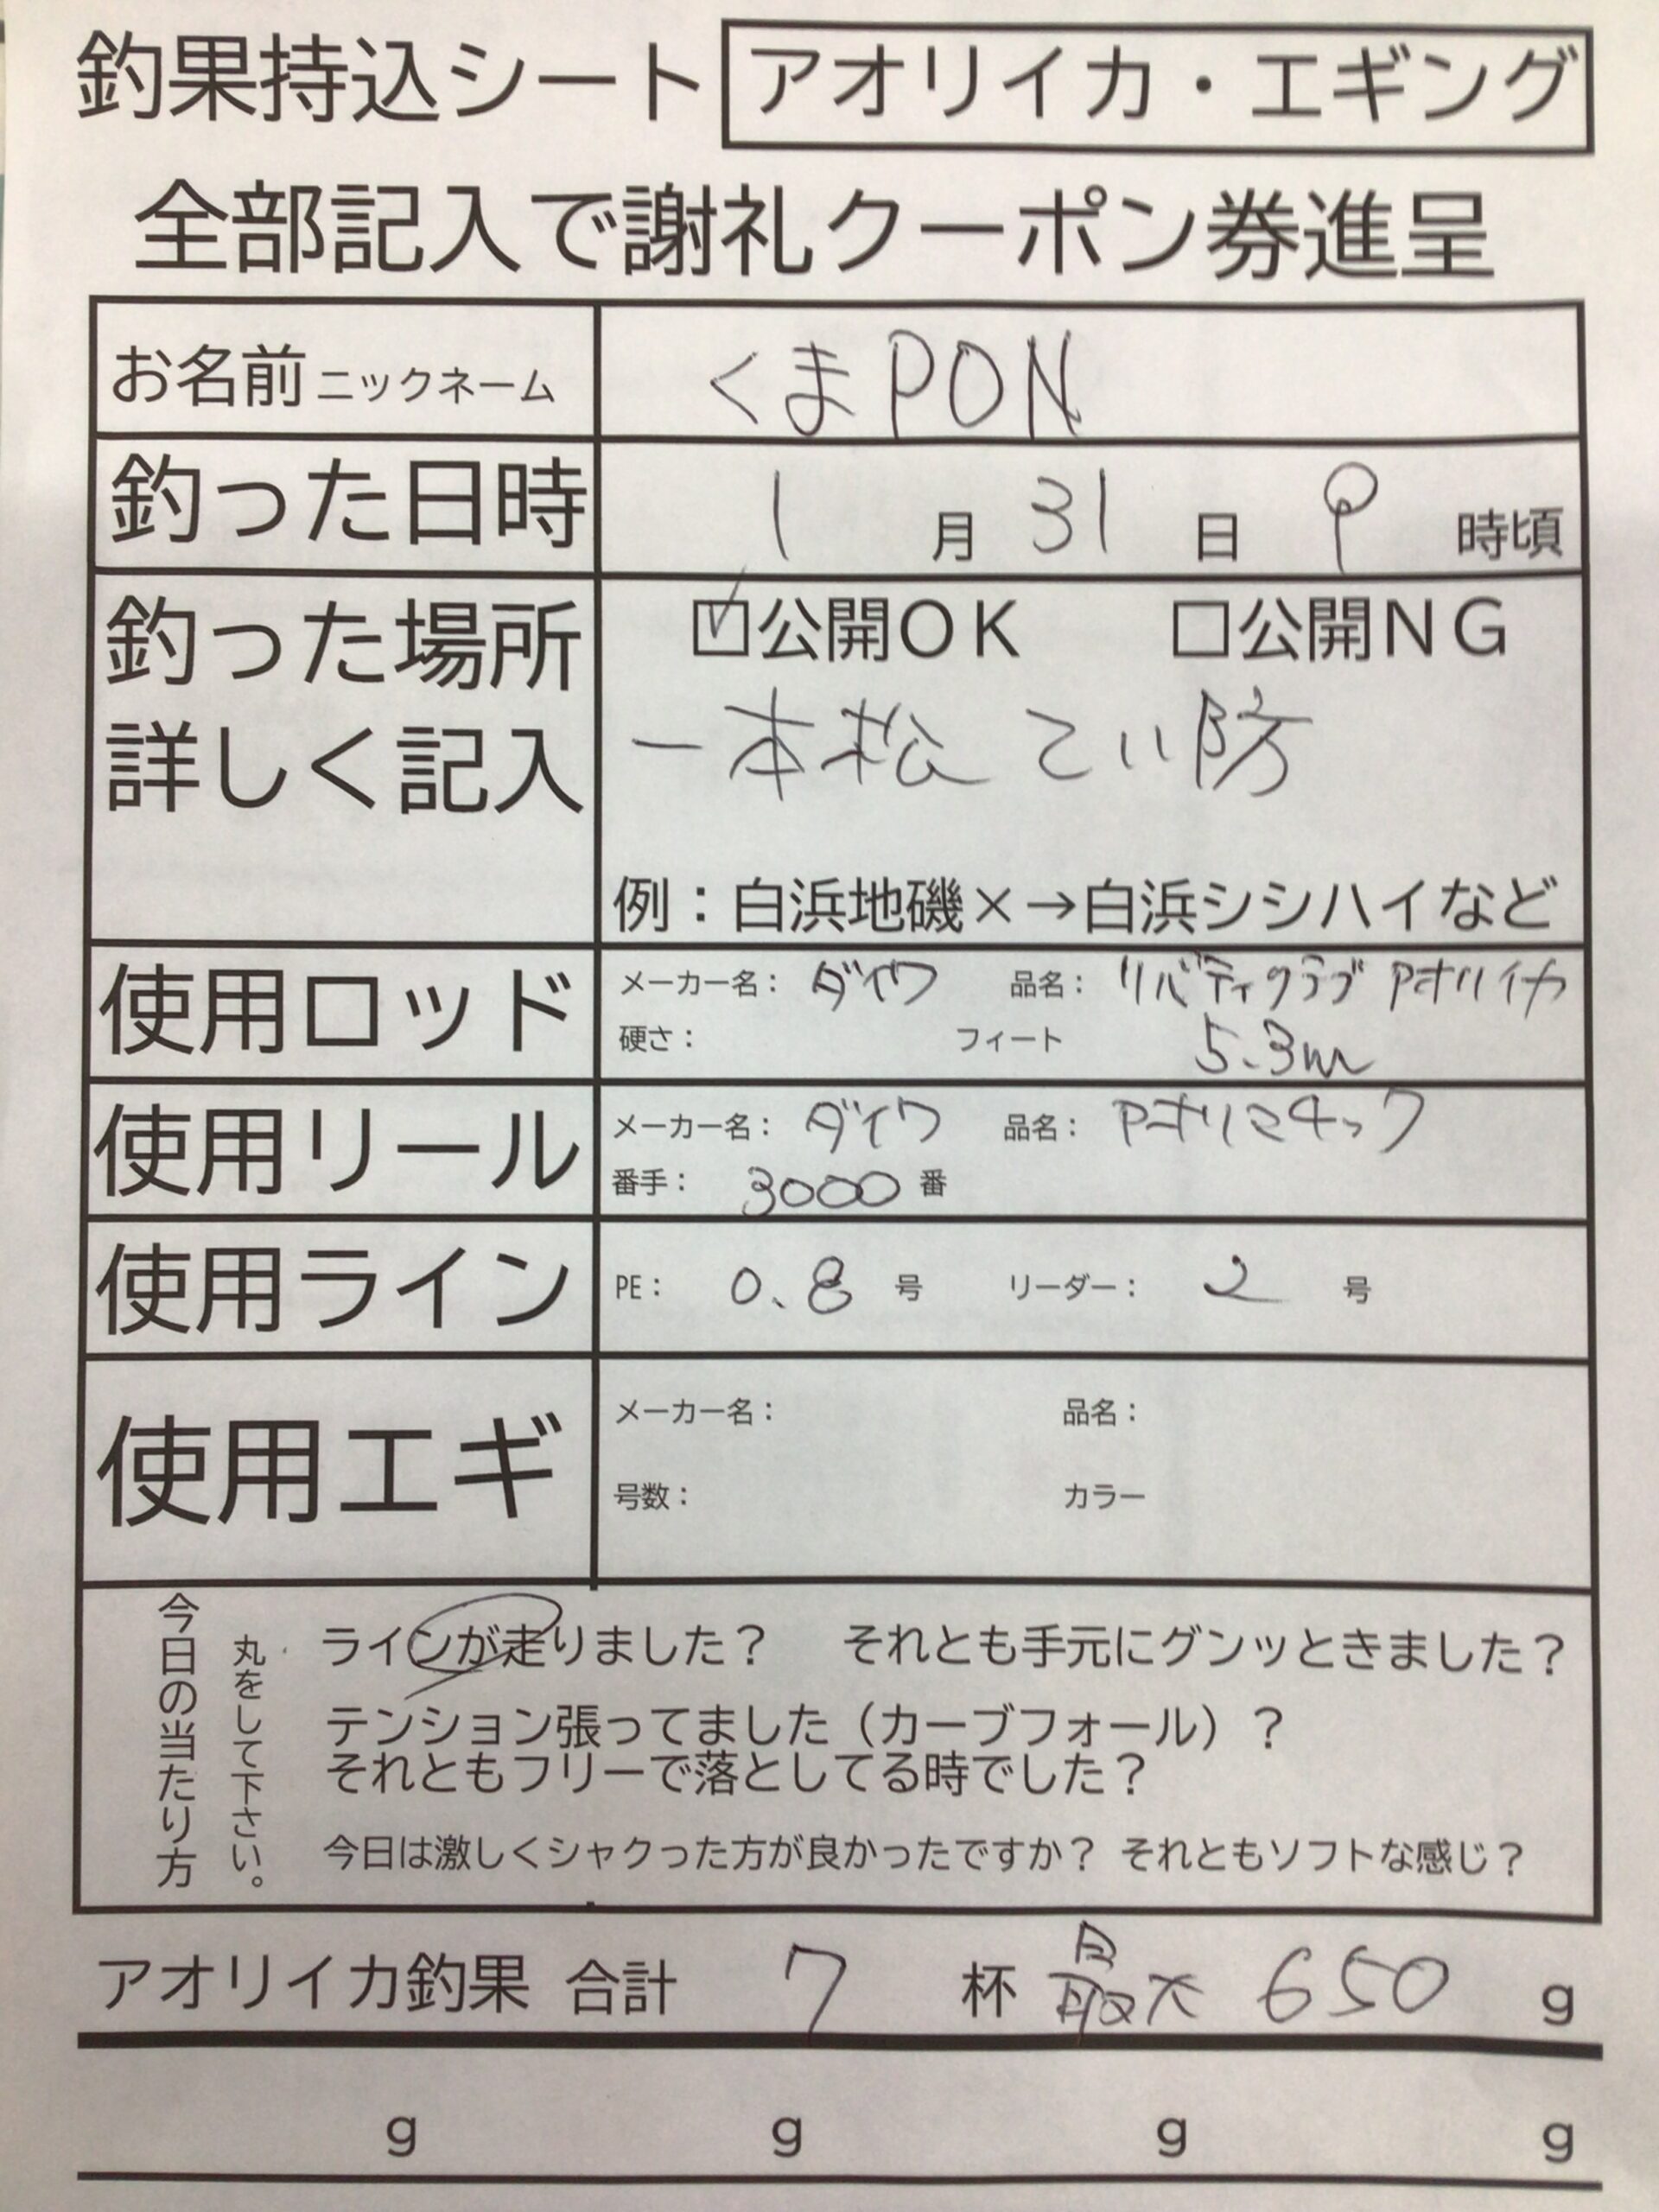 釣果持込シート アオリイカ・エギング
全部記入で謝礼クーポン券進呈
お名前 ニックネーム くまPON
釣った日時 1 月 31 日 9 時頃
釣った場所 ☑公開OK □公開NG
詳しく記入 一本松 てい防
例：白浜地磯×→白浜シシハイなど
使用ロッド メーカー名： ダイワ 品名： リバティクラブ アオリイカ
硬さ： フィート 5.3m
使用リール メーカー名： ダイワ 品名： アオリマチック
番手： 3000 番
使用ライン PE： 0.8 号 リーダー： 2 号
使用エギ メーカー名： 品名：
号数： カラー
今日の当たり方
丸をして下さい。
ラインが走りました？ それとも手元にグンッときました？
テンション張ってました（カーブフォール）？
それともフリーで落としてる時でした？
今日は激しくシャクった方が良かったですか？ それともソフトな感じ？
アオリイカ釣果 合計 7 杯 最大 650 g
g g g g